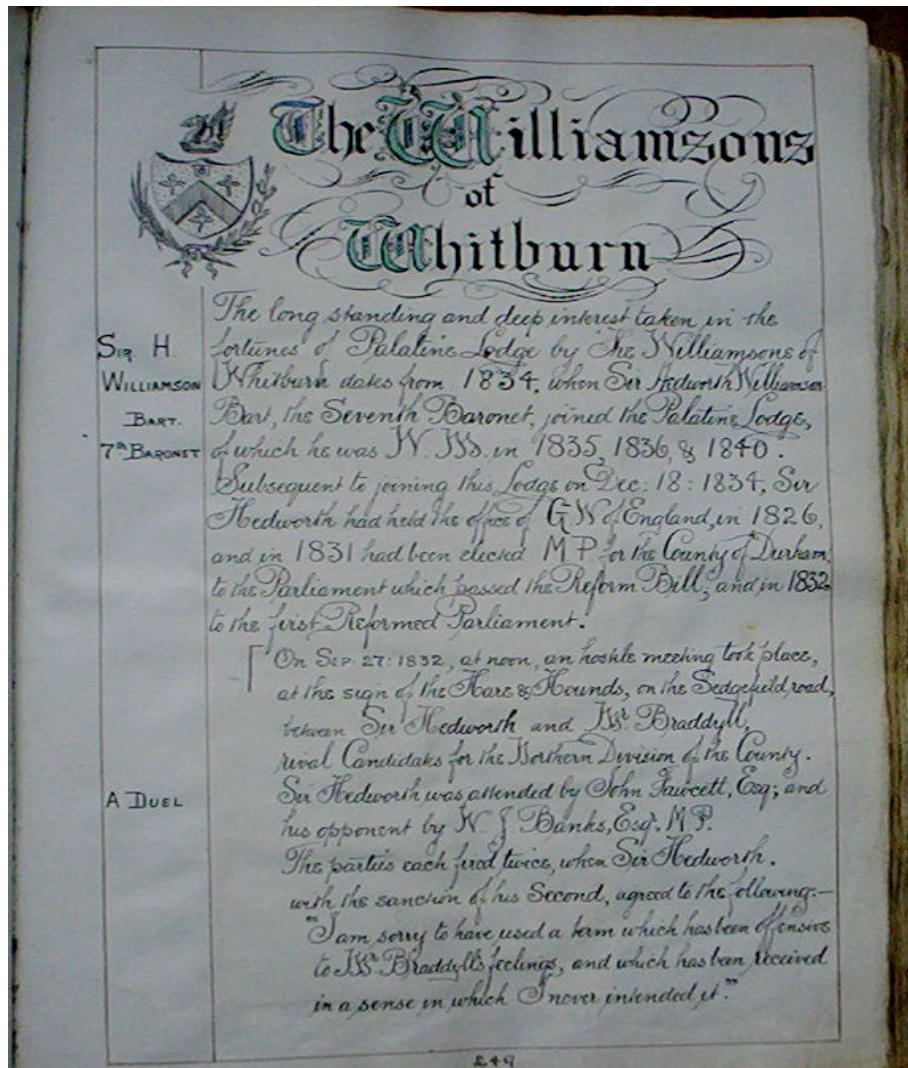 The Williamsons
of
Whitburn
The long standing and deep interest taken in the
fortunes of Palatine Lodge by The Williamsons of
Whitburn dates from 1834, when Sir Hedworth Williamson
Bart, the Seventh Baronet, joined the Palatine Lodge,
of which he was W. M. in 1835, 1836, & 1840.
Subsequent to joining this Lodge on Dec: 18: 1834, Sir
Hedworth had held the office of G W of England, in 1826,
and in 1831 had been elected M P. for the County of Durham,
to the Parliament which passed the Reform Bill; and in 1832
to the first Reformed Parliament.
SIR H.
WILLIAMSON
BART.
7th BARONET
On SEP. 27: 1832, at noon, an hostile meeting took place,
at the sign of the Hare & Hounds, on the Sedgefield road,
between Sir Hedworth and Mr Braddyll,
rival Candidates for the Northern Division of the County.
Sir Hedworth was attended by John Fawcett, Esq; and
his opponent by W. J. Banks, Esqr. M.P.
The parties each fired twice, when Sir Hedworth.
with the sanction of his Second, agreed to the following:—
"I am sorry to have used a term which has been offensive
to Mr Braddyll's feelings, and which has been received
in a sense in which I never intended it."
A DUEL
249